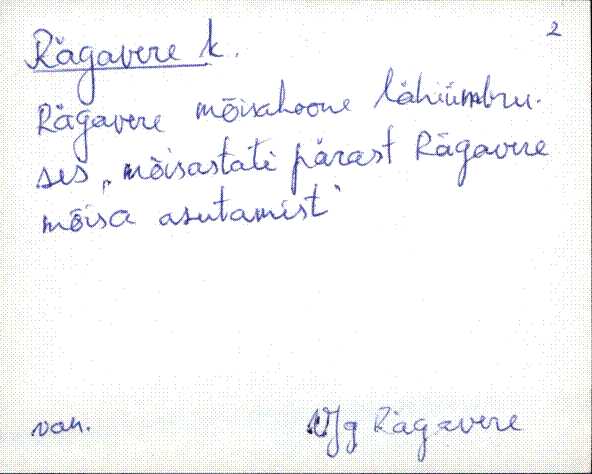 2
Rägavere k.
Rägavere mõisahoone lähiümbru-
ses, „mõisastati pärast Rägavere
mõisa asutamist"
van. VJg Rägavere